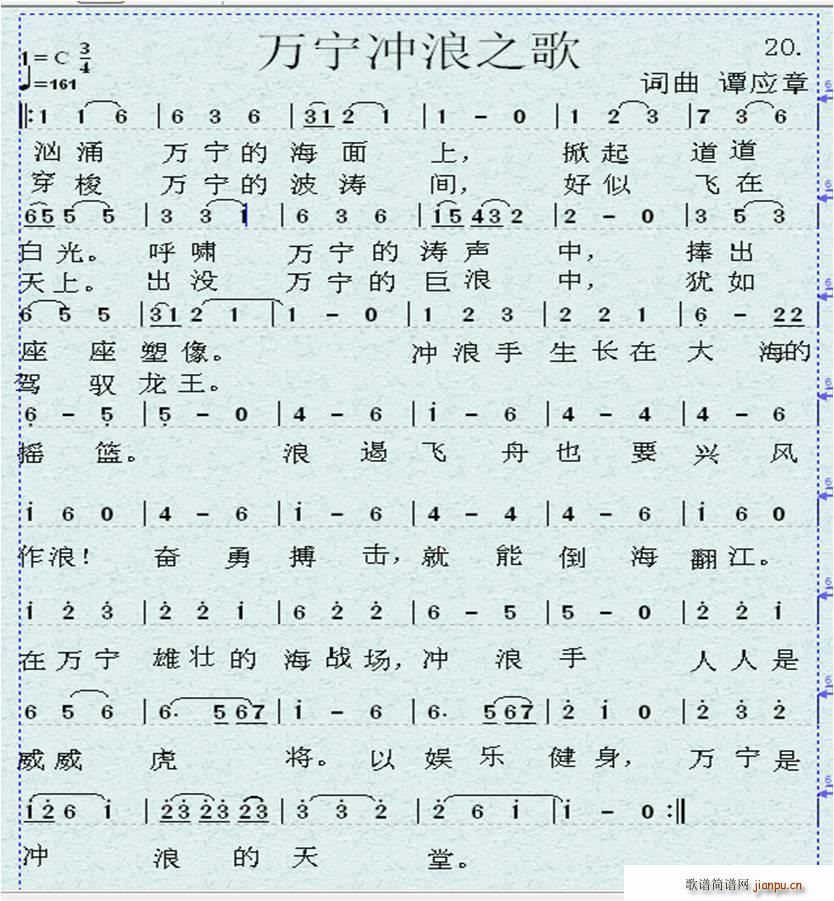 万宁冲浪之歌
20.
1=C 3/4
♩=161
词曲 谭应章
‖:1 1 6 | 6 3 6 | 31 2 1 | 1 - 0 | 1 2 3 | 7 3 6
汹涌 万宁的海面 上, 掀起 道道
穿梭 万宁的波涛 间, 好似 飞在
65 5 5 | 3 3 1 | 6 3 6 | 15 43 2 | 2 - 0 | 3 5 3
白光。 呼啸 万宁的涛声 中, 捧出
天上。 出没 万宁的巨浪 中, 犹如
6 5 5 | 31 2 1 | 1 - 0 | 1 2 3 | 2 2 1 | 6̣ - 22
座 座塑像。 冲浪手生长在大 海的
驾 驭龙王。
6̣ - 5̣ | 5̣ - 0 | 4 - 6 | i - 6 | 4 - 4 | 4 - 6
摇 篮。 浪 遏飞 舟也 要兴 风
i 6 0 | 4 - 6 | i - 6 | 4 - 4 | 4 - 6 | i 6 0
作浪! 奋 勇搏 击,就 能倒 海翻江。
i 2̇ 3̇ | 2̇ 2̇ i | 6 2̇ 2̇ | 6 - 5 | 5 - 0 | 2̇ 2̇ i
在万宁 雄壮的海战场,冲 浪手 人人是
6 5 6 | 6· 5 67 | i - 6 | 6· 5 67 | 2̇ i 0 | 2̇ 3̇ 2̇
威威 虎 将。以娱乐健身, 万宁是
i2̇ 6 i | 2̇3̇ 2̇3̇ 2̇3̇ | 3̇ 3̇ 2̇ | 2̇ 6 i | i - 0 :‖
冲 浪的天 堂。
歌谱简谱网 jianpu.cn